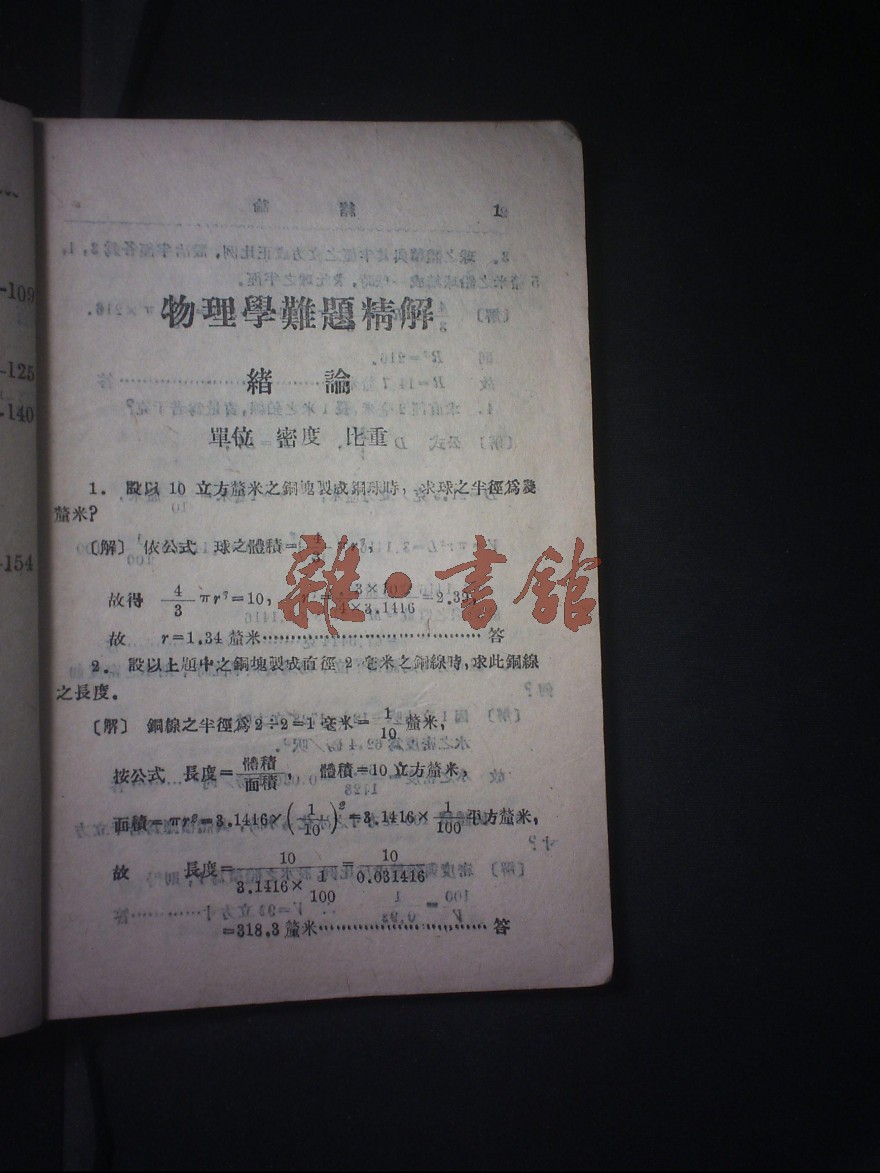 -109
-125
-140
-154
1
物理學難題精解
緒 論
單位 密度 比重
1. 設以 10 立方釐米之銅塊製成銅球時，求球之半徑爲幾
釐米?
〔解〕 依公式 球之體積=4/3 πr³,
故得 4/3 πr³=10, r³= 3×10/4×3.1416 =2.39,
故 r=1.34 釐米…………………………………答
2. 設以上題中之銅塊製成直徑 2 毫米之銅線時,求此銅線
之長度。
〔解〕 銅線之半徑爲 2÷2=1 毫米= 1/10 釐米,
按公式 長度= 體積/面積 , 體積=10 立方釐米,
面積=πr²=3.1416×(1/10)²=3.1416× 1/100 平方釐米,
故 長度= 10/3.1416× 1/100 = 10/0.031416
=318.3 釐米…………………………答
雜·書館